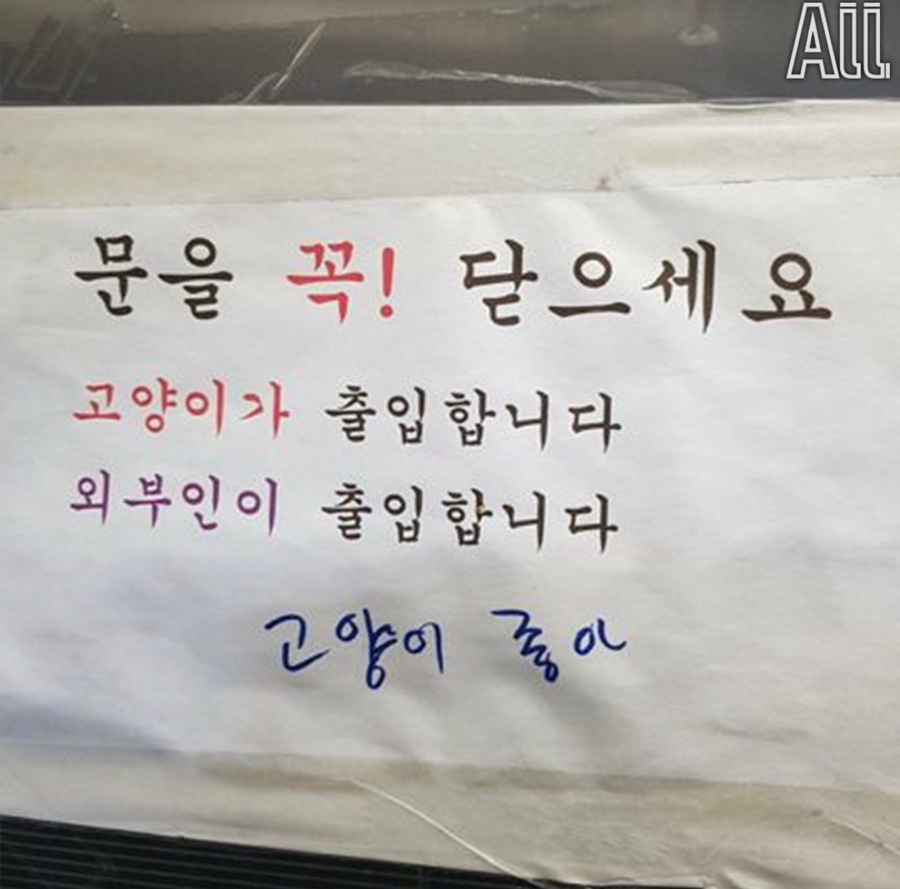 All
문을 꼭! 닫으세요
고양이가 출입합니다
외부인이 출입합니다
고양이 좋아